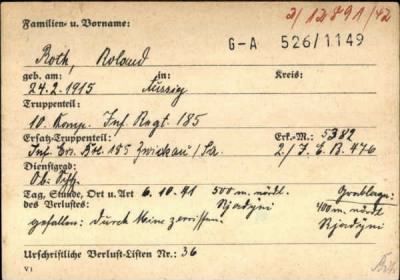 Familien- u. Vorname:
2/12891/42
Roth, Roland
G-A 526/1149
geb. am: in: Kreis:
24.2.1915 Aussig
Truppenteil:
10. Komp. Inf. Regt. 185
Ersatz-Truppenteil: Erk.-M.: 5382
Inf. Ers. Btl. 185 Zwickau/Sa. 2./J.E.B. 476
Dienstgrad:
Ob. Schtz.
Tag, Stunde, Ort u. Art 6.10.41 500 m. nördl. Grablage:
des Verlustes: Njadyni 400 m. nördl.
gefallen: durch Mine zerrissen! Njadyni
Urschriftliche Verlust-Listen Nr.: 36
V 1